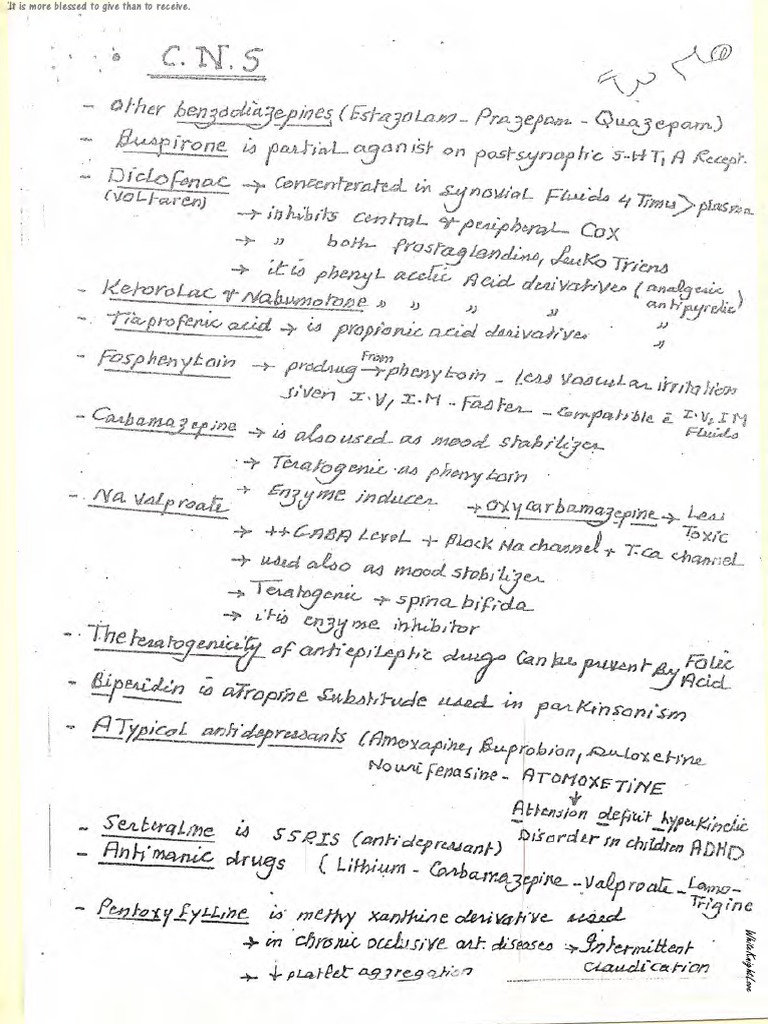 It is more blessed to give than to receive.
C.N.S
- Other benzodiazepines (Estazolam - Prazepam - Quazepam)
- Buspirone is partial agonist on postsynaptic 5-HT, A Recept.
- Diclofenac → Concenterated in synovial Fluids 4 Times > plasma
(Voltaren) → inhibits central & peripheral Cox
→ " both prostaglandins, Leuko Triens
→ it is phenyl acetic Acid derivatives (analgesic
antipyretic)
- Ketorolac & Nabumotone " " " " "
- Tiaprofenic acid → is propionic acid derivatives "
- Fosphenytoin → prodrug From → phenytoin - less vascular irritation
given I.V, I.M - Faster - compatible c̄ I.V, IM
Fluids
- Carbamazepine → is also used as mood stabilizer
→ Teratogenic as phenytoin
→ Enzyme inducer → oxycarbamazepine → Less
Toxic
- Na valproate
→ ++ GABA Level + Block Na channel + T.Ca channel
→ used also as mood stabilizer
→ Teratogenic → spina bifida
→ it is enzyme inhibitor
- The teratogenicity of antiepileptic drugs Can be prevent By Folic
Acid
- Biperidin is atropine Substitude used in parkinsonism
- ATypical antidepressants (Amoxapine, Buprobion, Duloxetine
Nomifenasine - ATOMOXETINE
↓
Attension deficit hyperkinetic
Disorder in children ADHD
- Serteraline is SSRIS (antidepressant)
- Antimanic drugs (Lithium - Carbamazepine - valproate - Lamo-
Trigine
- Pentoxyfylline is methy xanthine derivative used
→ in chronic occlusive art. diseases → Intermittent
Claudication
→ ↓ platlet aggregation
WhiteKnightLove